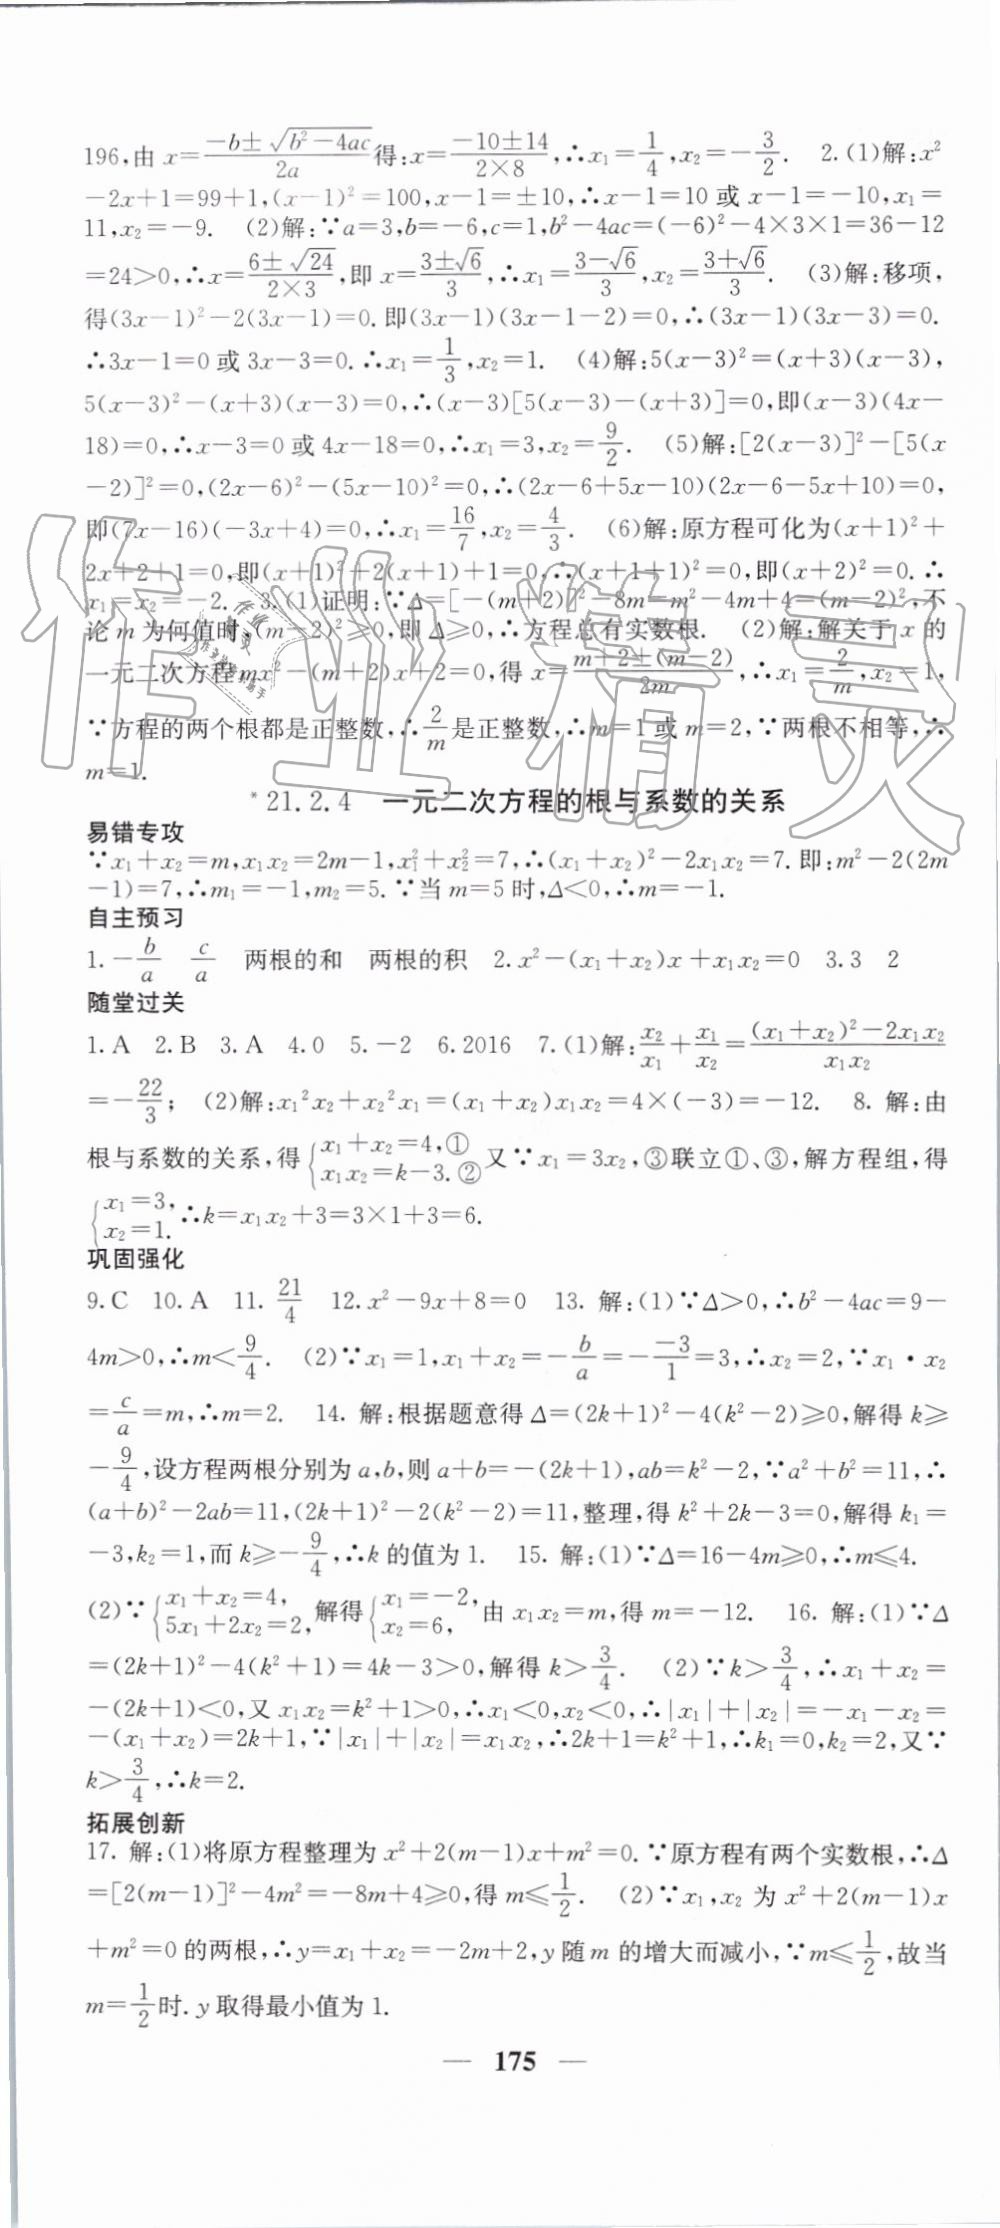 196,由 x=(-b±√(b²-4ac))/(2a)得:x=(-10±14)/(2×8),∴x₁=1/4,x₂=-3/2. 2.(1)解:x²
-2x+1=99+1,(x-1)²=100,x-1=±10,∴x-1=10 或 x-1=-10,x₁=
11,x₂=-9. (2)解:∵a=3,b=-6,c=1,b²-4ac=(-6)²-4×3×1=36-12
=24>0,∴x=(6±√24)/(2×3),即 x=(3±√6)/3,∴x₁=(3-√6)/3,x₂=(3+√6)/3. (3)解:移项,
得(3x-1)²-2(3x-1)=0.即(3x-1)(3x-1-2)=0,∴(3x-1)(3x-3)=0.
∴3x-1=0 或 3x-3=0.∴x₁=1/3,x₂=1. (4)解:5(x-3)²=(x+3)(x-3),
5(x-3)²-(x+3)(x-3)=0,∴(x-3)[5(x-3)-(x+3)]=0,即(x-3)(4x-
18)=0,∴x-3=0 或 4x-18=0,∴x₁=3,x₂=9/2. (5)解:[2(x-3)]²-[5(x
-2)]²=0,(2x-6)²-(5x-10)²=0,∴(2x-6+5x-10)(2x-6-5x+10)=0,
即(7x-16)(-3x+4)=0,∴x₁=16/7,x₂=4/3. (6)解:原方程可化为(x+1)²+
2x+2+1=0,即(x+1)²+2(x+1)+1=0,∴(x+1+1)²=0,即(x+2)²=0.∴
x₁=x₂=-2. 3.(1)证明:∵Δ=[-(m+2)]²-8m=m²-4m+4=(m-2)²,不
论 m 为何值时,(m-2)²≥0,即 Δ≥0,∴方程总有实数根. (2)解:解关于 x 的
一元二次方程mx²-(m+2)x+2=0,得 x=(m+2±(m-2))/(2m),∴x₁=2/m,x₂=1,
∵方程的两个根都是正整数,∴2/m是正整数,∴m=1或 m=2,∵两根不相等,∴
m=1.
*21.2.4 一元二次方程的根与系数的关系
易错专攻
∵x₁+x₂=m,x₁x₂=2m-1,x₁²+x₂²=7,∴(x₁+x₂)²-2x₁x₂=7.即:m²-2(2m
-1)=7,∴m₁=-1,m₂=5.∵当 m=5 时,Δ<0,∴m=-1.
自主预习
1.-b/a c/a 两根的和 两根的积 2.x²-(x₁+x₂)x+x₁x₂=0 3.3 2
随堂过关
1.A 2.B 3.A 4.0 5.-2 6.2016 7.(1)解:x₂/x₁+x₁/x₂=((x₁+x₂)²-2x₁x₂)/(x₁x₂)
=-22/3; (2)解:x₁²x₂+x₂²x₁=(x₁+x₂)x₁x₂=4×(-3)=-12. 8. 解:由
根与系数的关系,得{x₁+x₂=4,① x₁x₂=k-3.②又∵x₁=3x₂,③联立①、③,解方程组,得
{x₁=3, x₂=1.∴k=x₁x₂+3=3×1+3=6.
巩固强化
9.C 10.A 11.21/4 12.x²-9x+8=0 13. 解:(1)∵Δ>0,∴b²-4ac=9-
4m>0,∴m<9/4. (2)∵x₁=1,x₁+x₂=-b/a=-(-3)/1=3,∴x₂=2,∵x₁·x₂
=c/a=m,∴m=2. 14. 解:根据题意得 Δ=(2k+1)²-4(k²-2)≥0,解得 k≥
-9/4,设方程两根分别为 a,b,则 a+b=-(2k+1),ab=k²-2,∵a²+b²=11,∴
(a+b)²-2ab=11,(2k+1)²-2(k²-2)=11,整理,得 k²+2k-3=0,解得 k₁=
-3,k₂=1,而 k≥-9/4,∴k 的值为 1. 15. 解:(1)∵Δ=16-4m≥0,∴m≤4.
(2)∵{x₁+x₂=4, 5x₁+2x₂=2,解得{x₁=-2, x₂=6,由 x₁x₂=m,得 m=-12. 16. 解:(1)∵Δ
=(2k+1)²-4(k²+1)=4k-3>0,解得 k>3/4. (2)∵k>3/4,∴x₁+x₂=
-(2k+1)<0,又 x₁x₂=k²+1>0,∴x₁<0,x₂<0,∴|x₁|+|x₂|=-x₁-x₂=
-(x₁+x₂)=2k+1,∵|x₁|+|x₂|=x₁x₂,∴2k+1=k²+1,∴k₁=0,k₂=2,又∵
k>3/4,∴k=2.
拓展创新
17. 解:(1)将原方程整理为 x²+2(m-1)x+m²=0.∵原方程有两个实数根,∴Δ
=[2(m-1)]²-4m²=-8m+4≥0,得 m≤1/2. (2)∵x₁,x₂ 为 x²+2(m-1)x
+m²=0 的两根,∴y=x₁+x₂=-2m+2,y 随 m 的增大而减小,∵m≤1/2,故当
m=1/2时.y 取得最小值为 1.
— 175 —
作业精灵